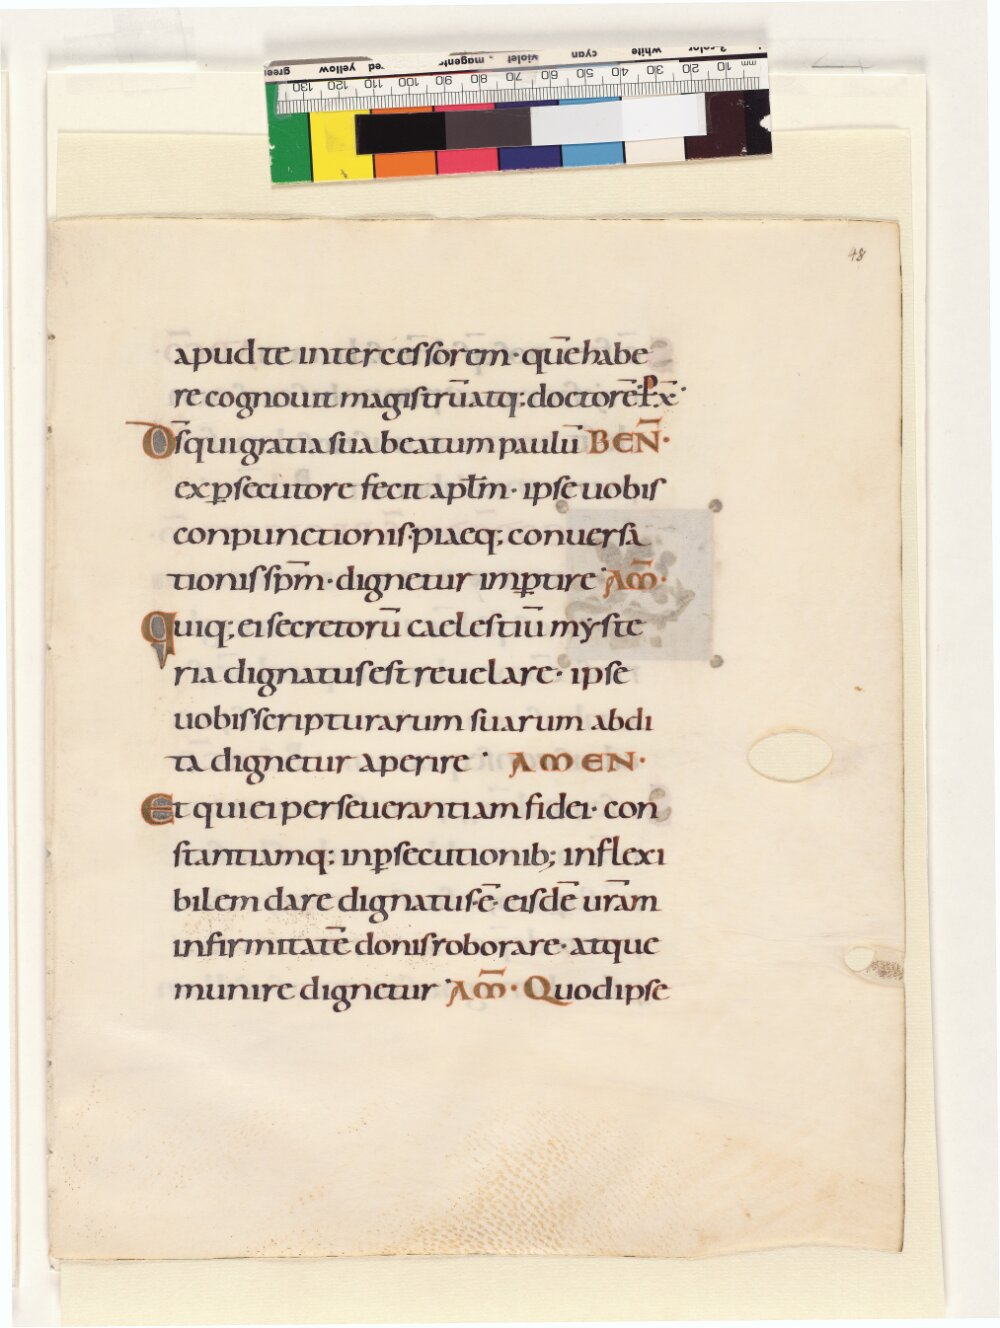 3-color white cyan violet magenta red yellow green
mm 10 20 30 40 50 60 70 80 90 100 110 120 130
48
apud te intercessorem · quē habe
re cognouit magistrū atq; doctorē · P̲ xp̄m ·
Ds̄ qui gratia sua beatum paulū BEÑ ·
ex p̲secutore fecit apłm · ipse uobis
conpunctionis · piaeq; conuersa
tionis sp̄m · dignetur imp̲tire · AM̄ ·
Quiq; ei secretorū caelestiū myste
ria dignatus est reuelare · ipse
uobis scripturarum suarum abdi
ta dignetur aperire · AMEN ·
Et qui ei perseuerantiam fidei · con
stantiamq; in p̲secutionib; inflexi
bilem dare dignatus · ē · eisdē ur̄am
infirmitatē donis roborare · atque
munire dignetur · AM̄ · Quod ipse